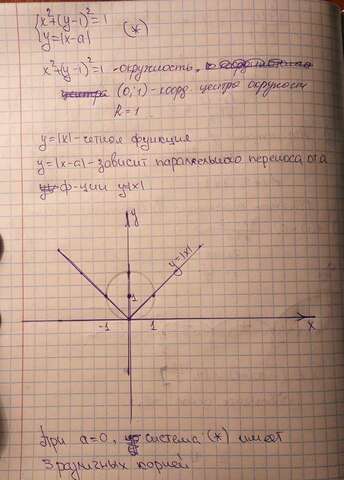 {x²+(y-1)²=1
{y=|x-a|
(*)
x²+(y-1)²=1 - окружность,
(0;1) - коорд центра окружности
R=1
y=|x| - четная функция
y=|x-a| - зависит параллельного переноса от a
ф-ции y|x|
y
y=|x|
1
-1 1 x
При a=0, система (*) имеет
3 различных корней